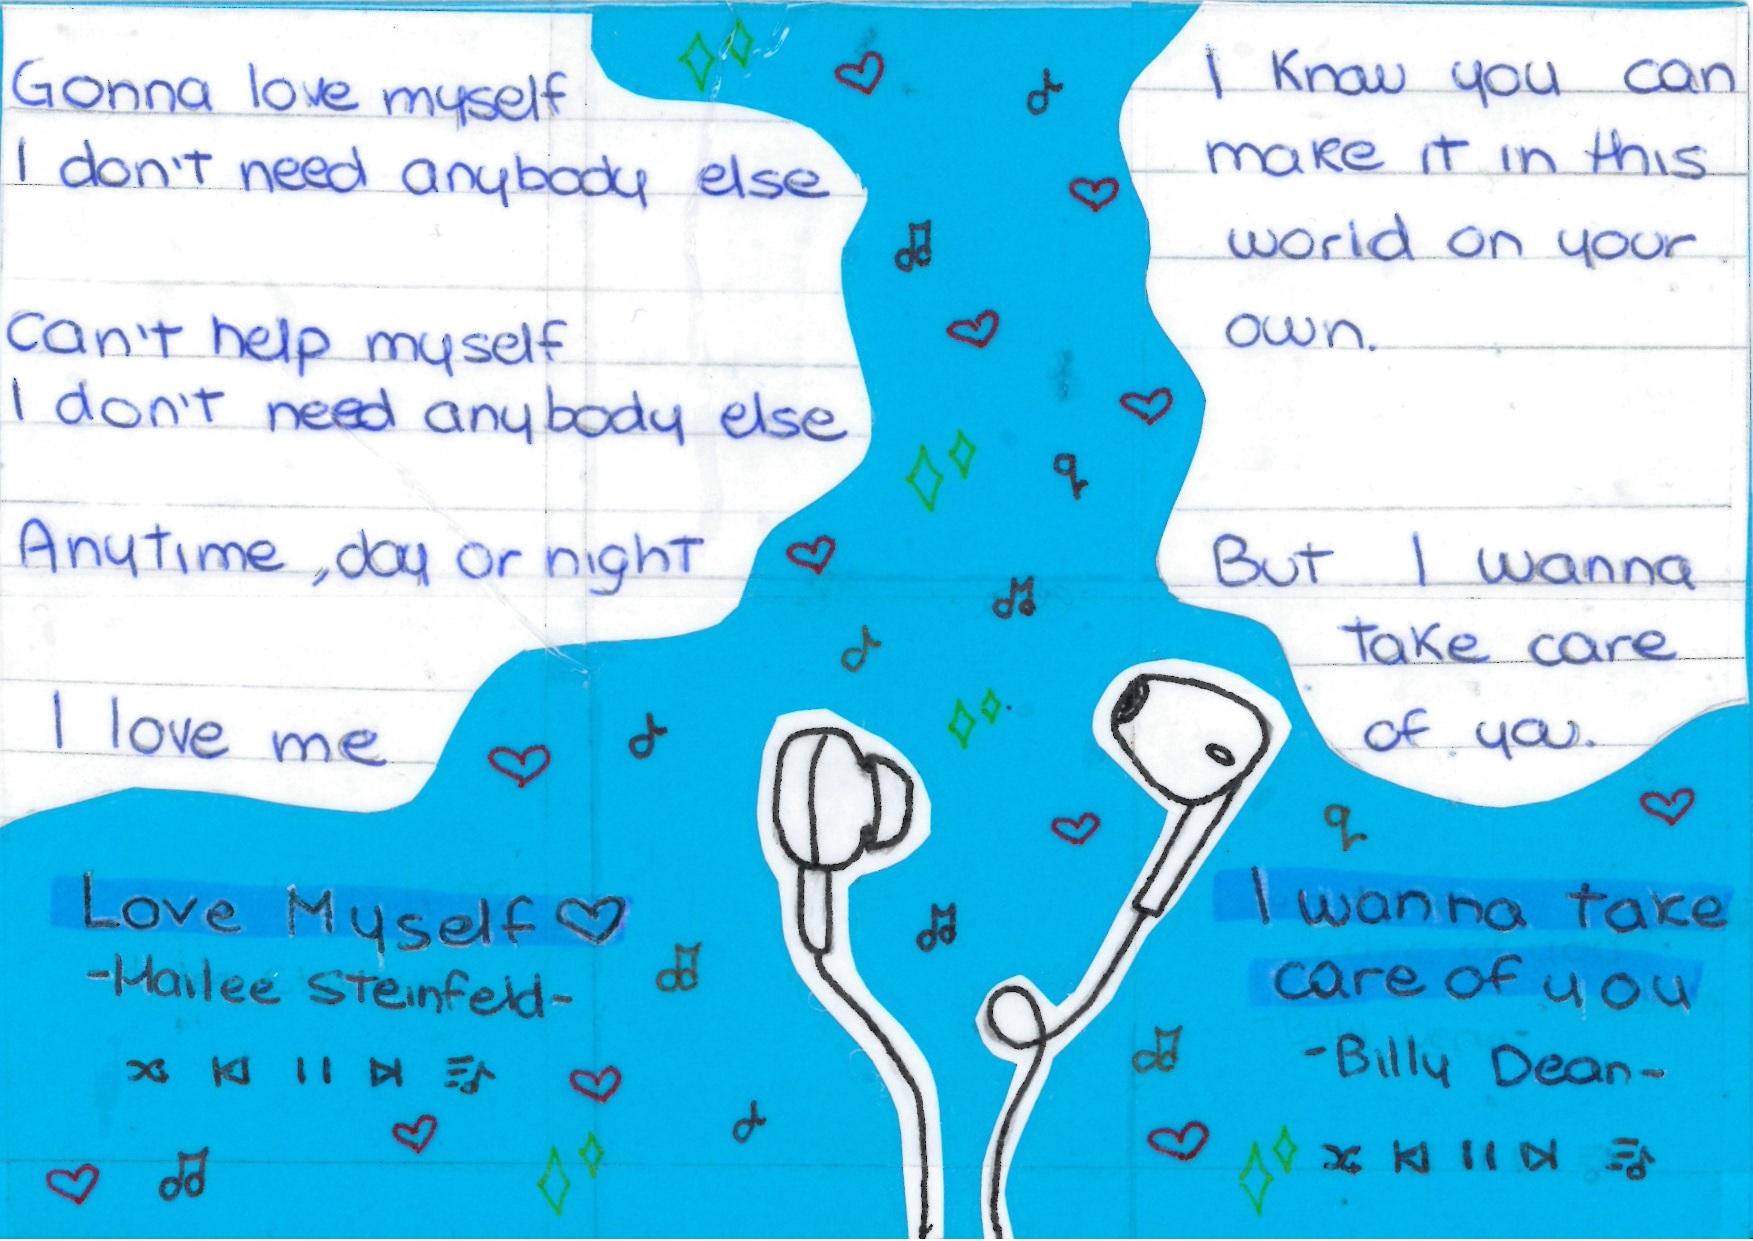 Gonna love myself
I don't need anybody else
Can't help myself
I don't need anybody else
Anytime, day or night
I love me
Love Myself ♡
-Hailee Steinfeld-
I know you can
make it in this
world on your
own.
But I wanna
take care
of you.
I wanna take
care of you
-Billy Dean-